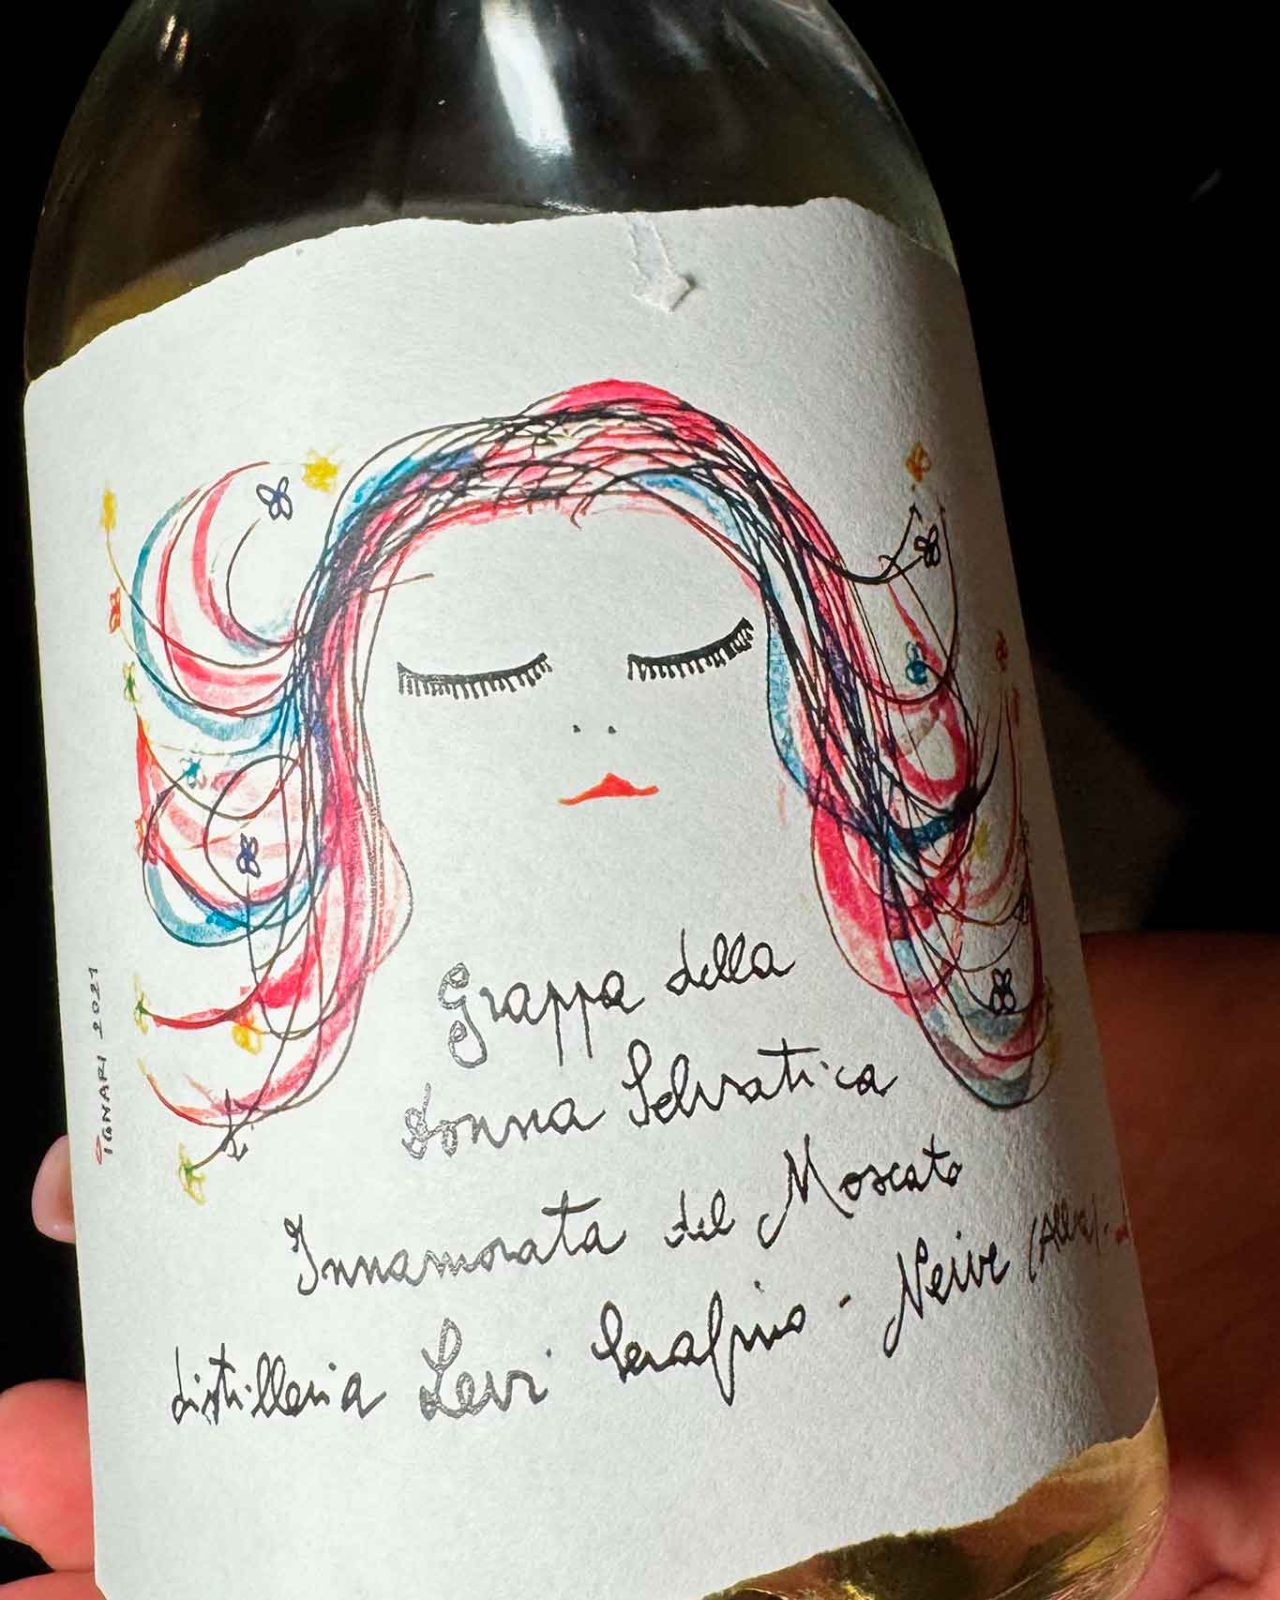 Grappa della
donna Selvatica
Innamorata del Moscato
distilleria Levi Serafino - Neive (Alba)
PIGNARI 2021